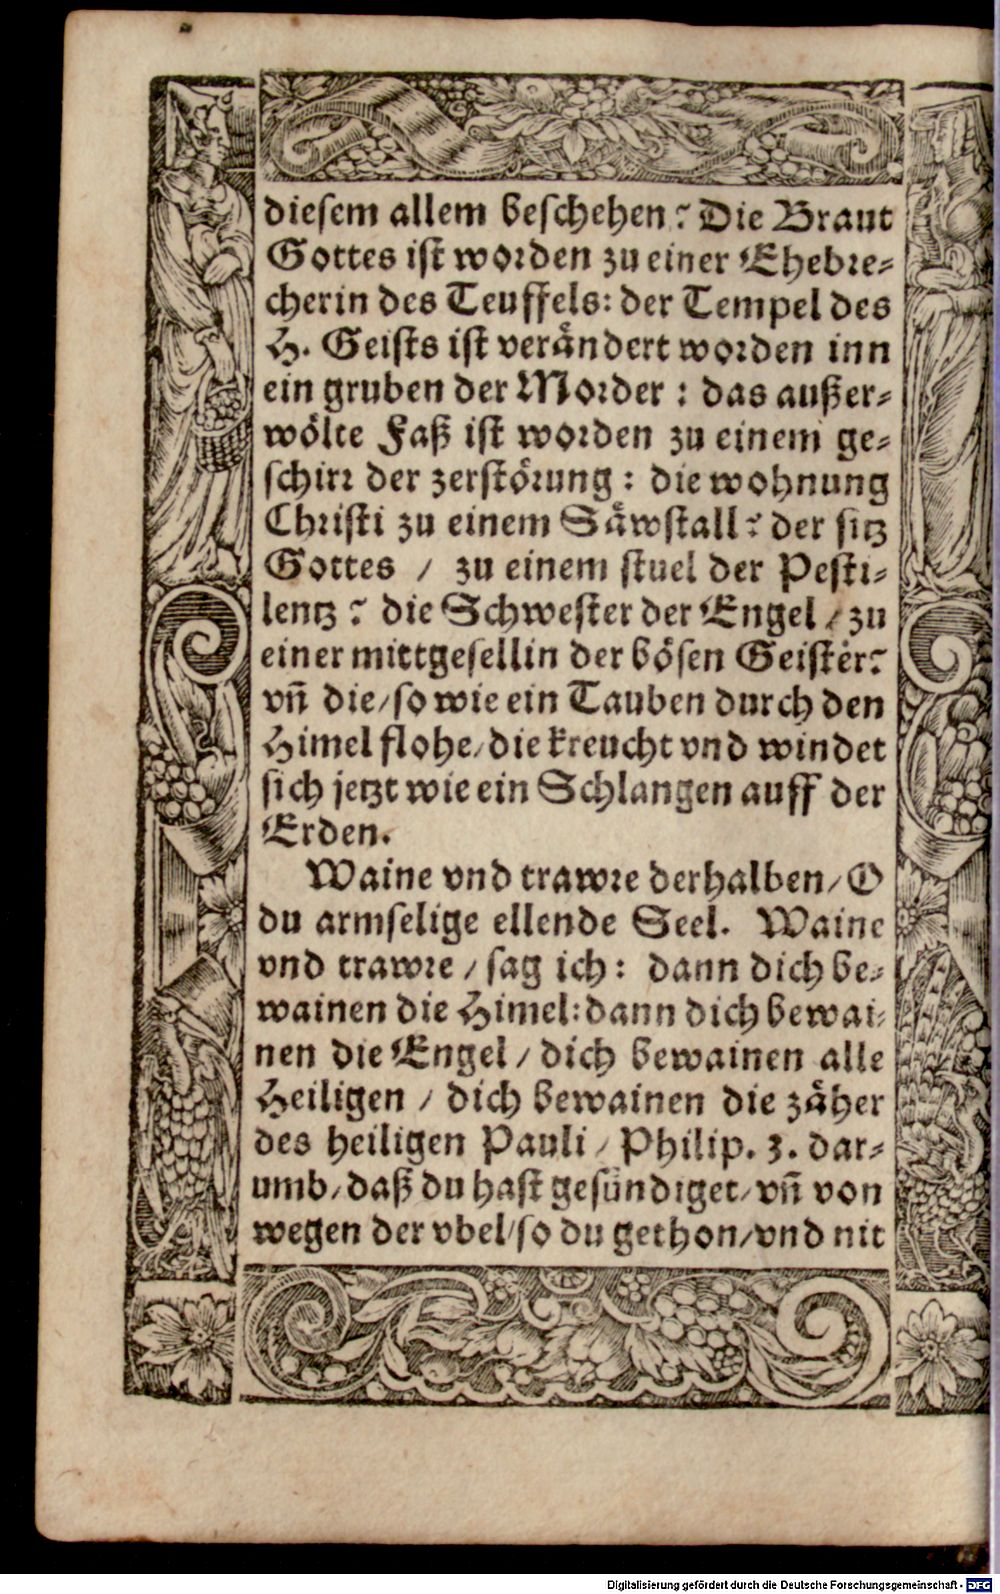 diesem allem beschehen? Die Braut
Gottes ist worden zu einer Ehebre-
cherin des Teuffels: der Tempel des
H. Geists ist verändert worden inn
ein gruben der Morder: das außer-
wölte Faß ist worden zu einem ge-
schirr der zerstörung: die wohnung
Christi zu einem Säwstall? der sitz
Gottes / zu einem stuel der Pesti-
lentz? die Schwester der Engel / zu
einer mittgesellin der bösen Geister?
vñ die / so wie ein Tauben durch den
Himel flohe / die kreucht vnd windet
sich jetzt wie ein Schlangen auff der
Erden.
Waine vnd trawre derhalben / O
du armselige ellende Seel. Waine
vnd trawre / sag ich: dann dich be-
wainen die Himel: dann dich bewai-
nen die Engel / dich bewainen alle
Heiligen / dich bewainen die zäher
des heiligen Pauli / Philip. 3. dar-
umb / daß du hast gesündiget / vñ von
wegen der vbel / so du gethon / vnd nit
Digitalisierung gefördert durch die Deutsche Forschungsgemeinschaft - DFG